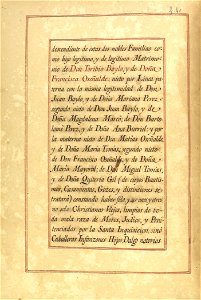 descendiente de otras dos nobles Familias co-
mo hijo legitimo, y de legitimo Matrimo-
nio de Don Toribio Bayle, y de Doña
Francisca Ozcáriz: nieto por Linea pa-
terna con la misma legitimidad de Don
Juan Bayle, y de Doña Mariana Perez,
segundo nieto de Don Juan Bayle, y de
Doña Magdalena Marco, de Don Barto-
lome Perez, y de Doña Ana Burriel: y por
la materna nieto de Don Matias
y de Doña Maria Tomas, segundo nieto
de Don Francisco y de Doña
Maria Mayoral, de Don Miguel Tomas,
y de Doña Quiteria Gil (de cuyos Bautis-
mos, Casamientos, Gozes, y distinciones se
tratará) constando haber sido, y ser unos y otros
no solo Christianos Viejos, limpios de to-
da mala raza de Moros, Judios, y Peni-
tenciados por la Santa Inquisicion, sinó
Caballeros Infanzones Hijos Dalgo notorios